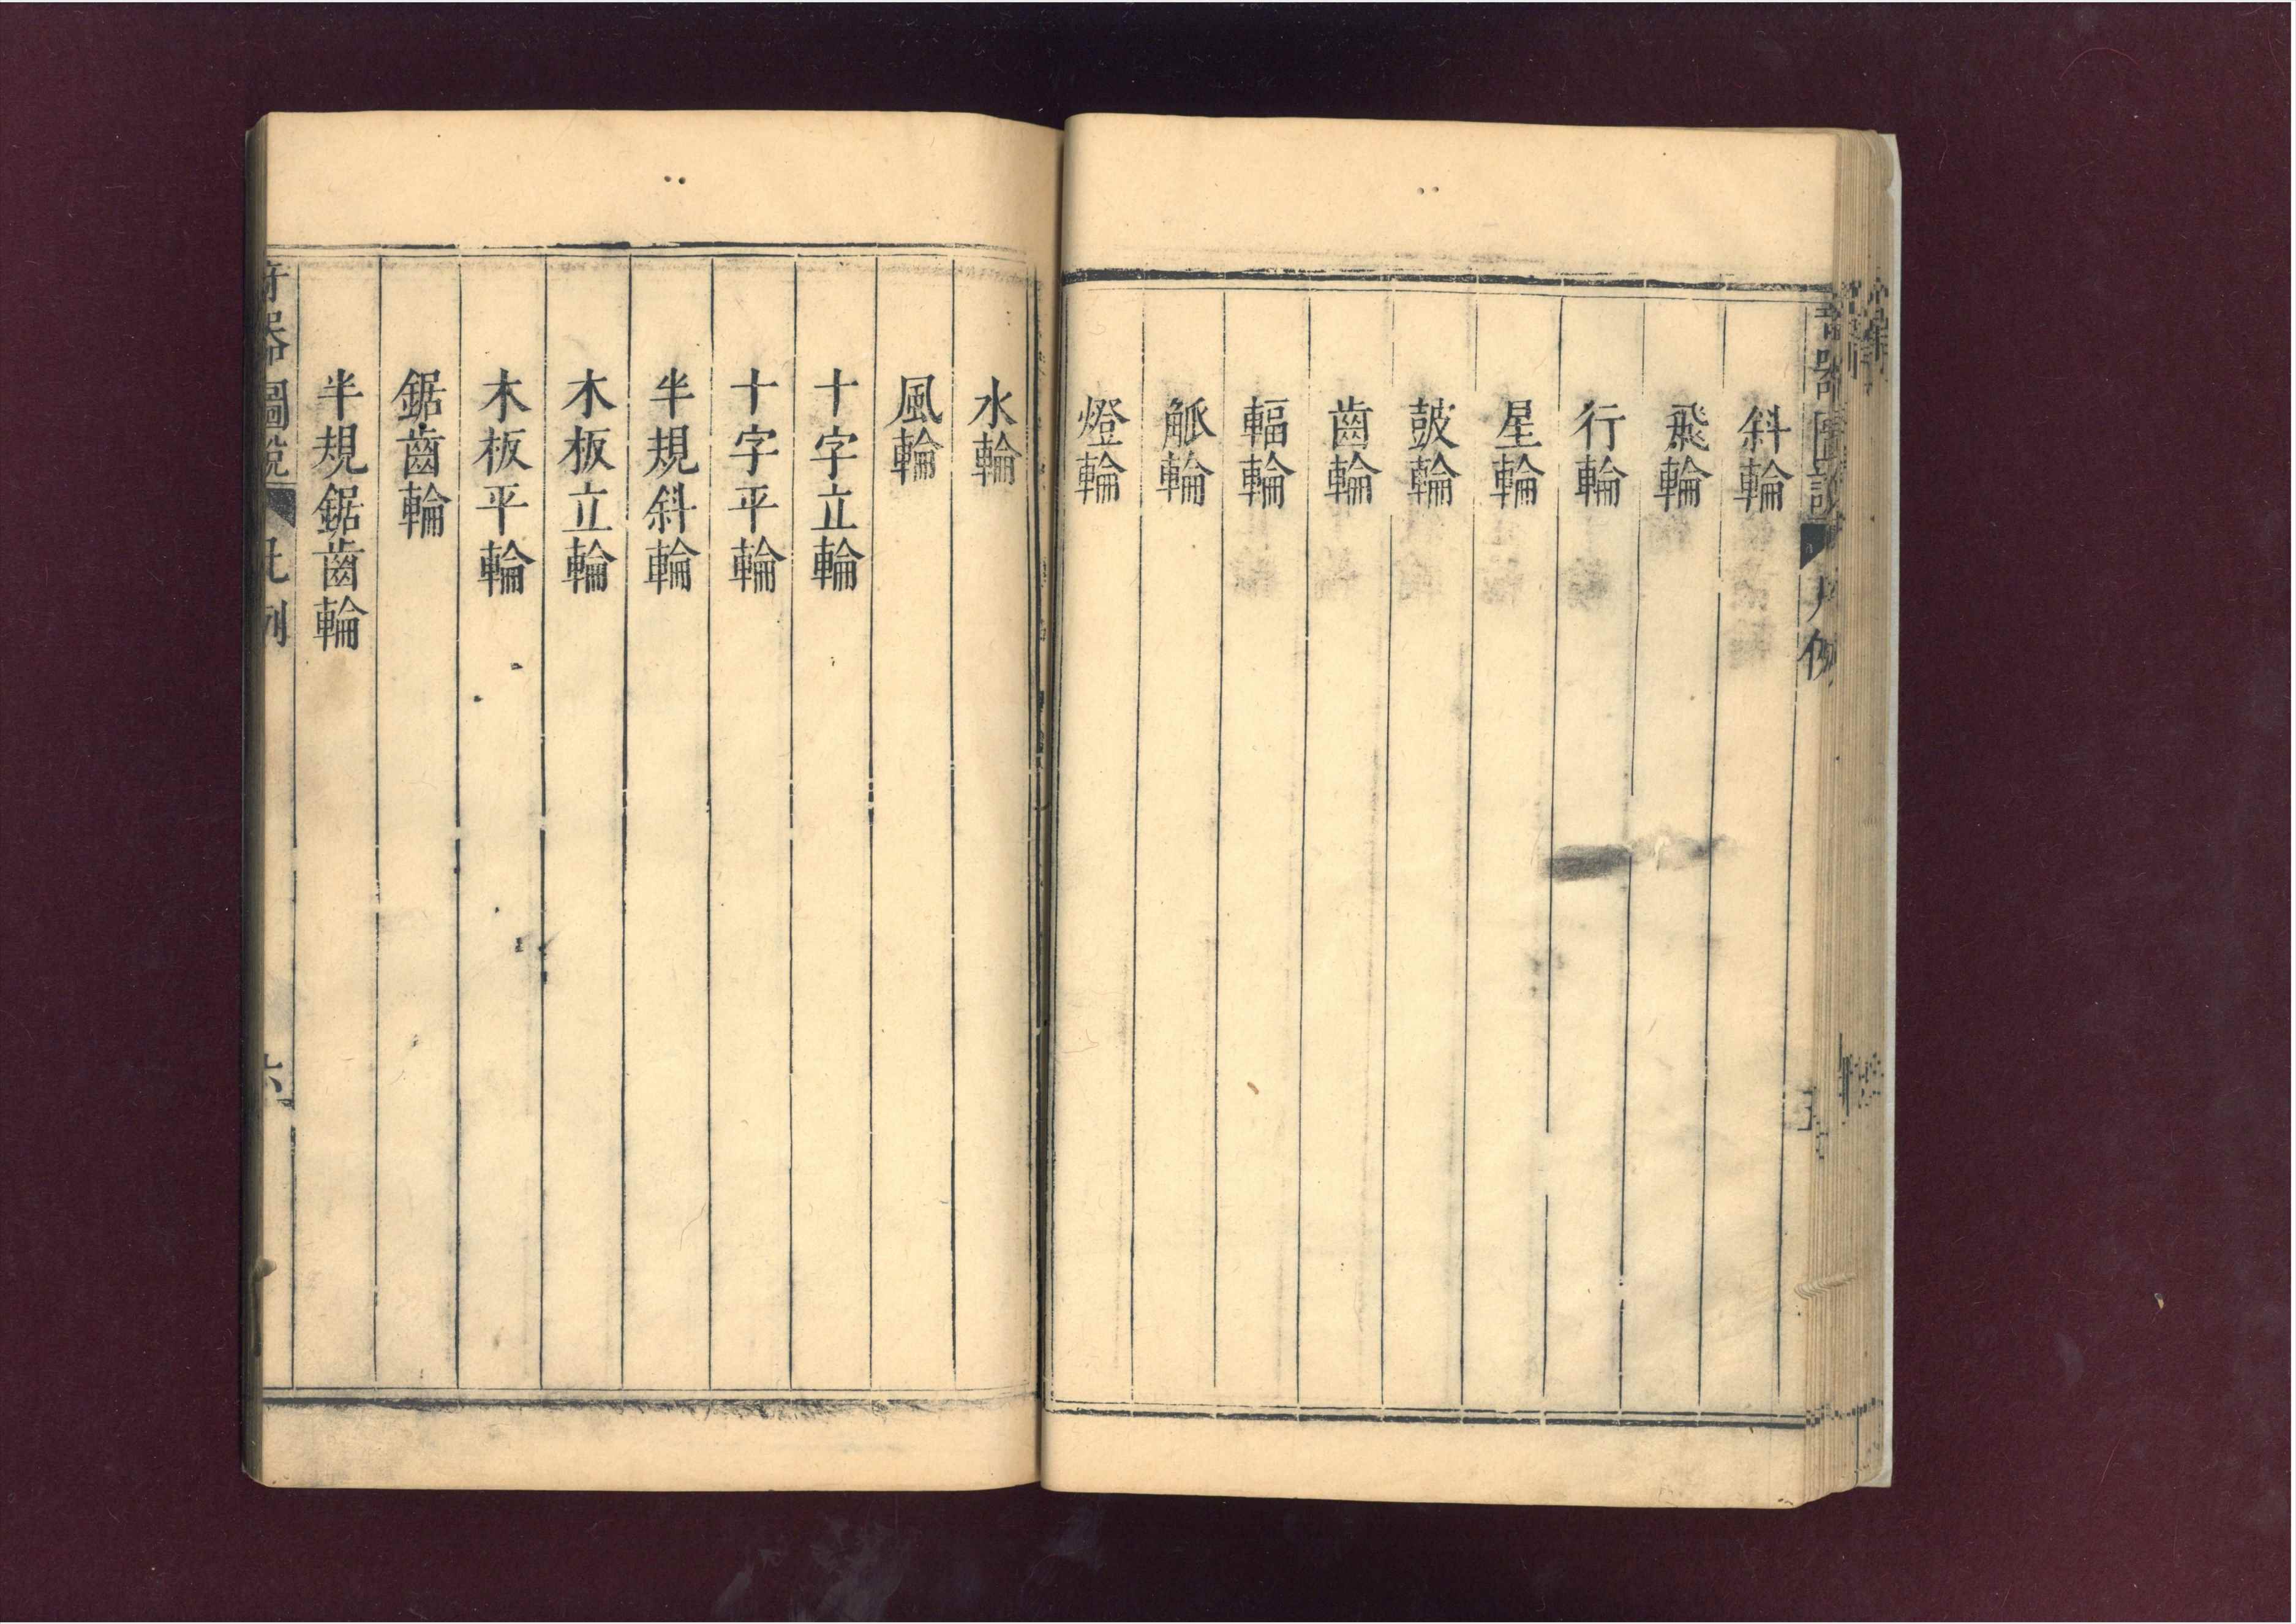 斜輪
飛輪
行輪
星輪
皷輪
齒輪
輻輪
觚輪
燈輪
水輪
風輪
十字立輪
十字平輪
半規斜輪
木板立輪
木板平輪
鋸齒輪
半規鋸齒輪
奇器圖說 凡例 六